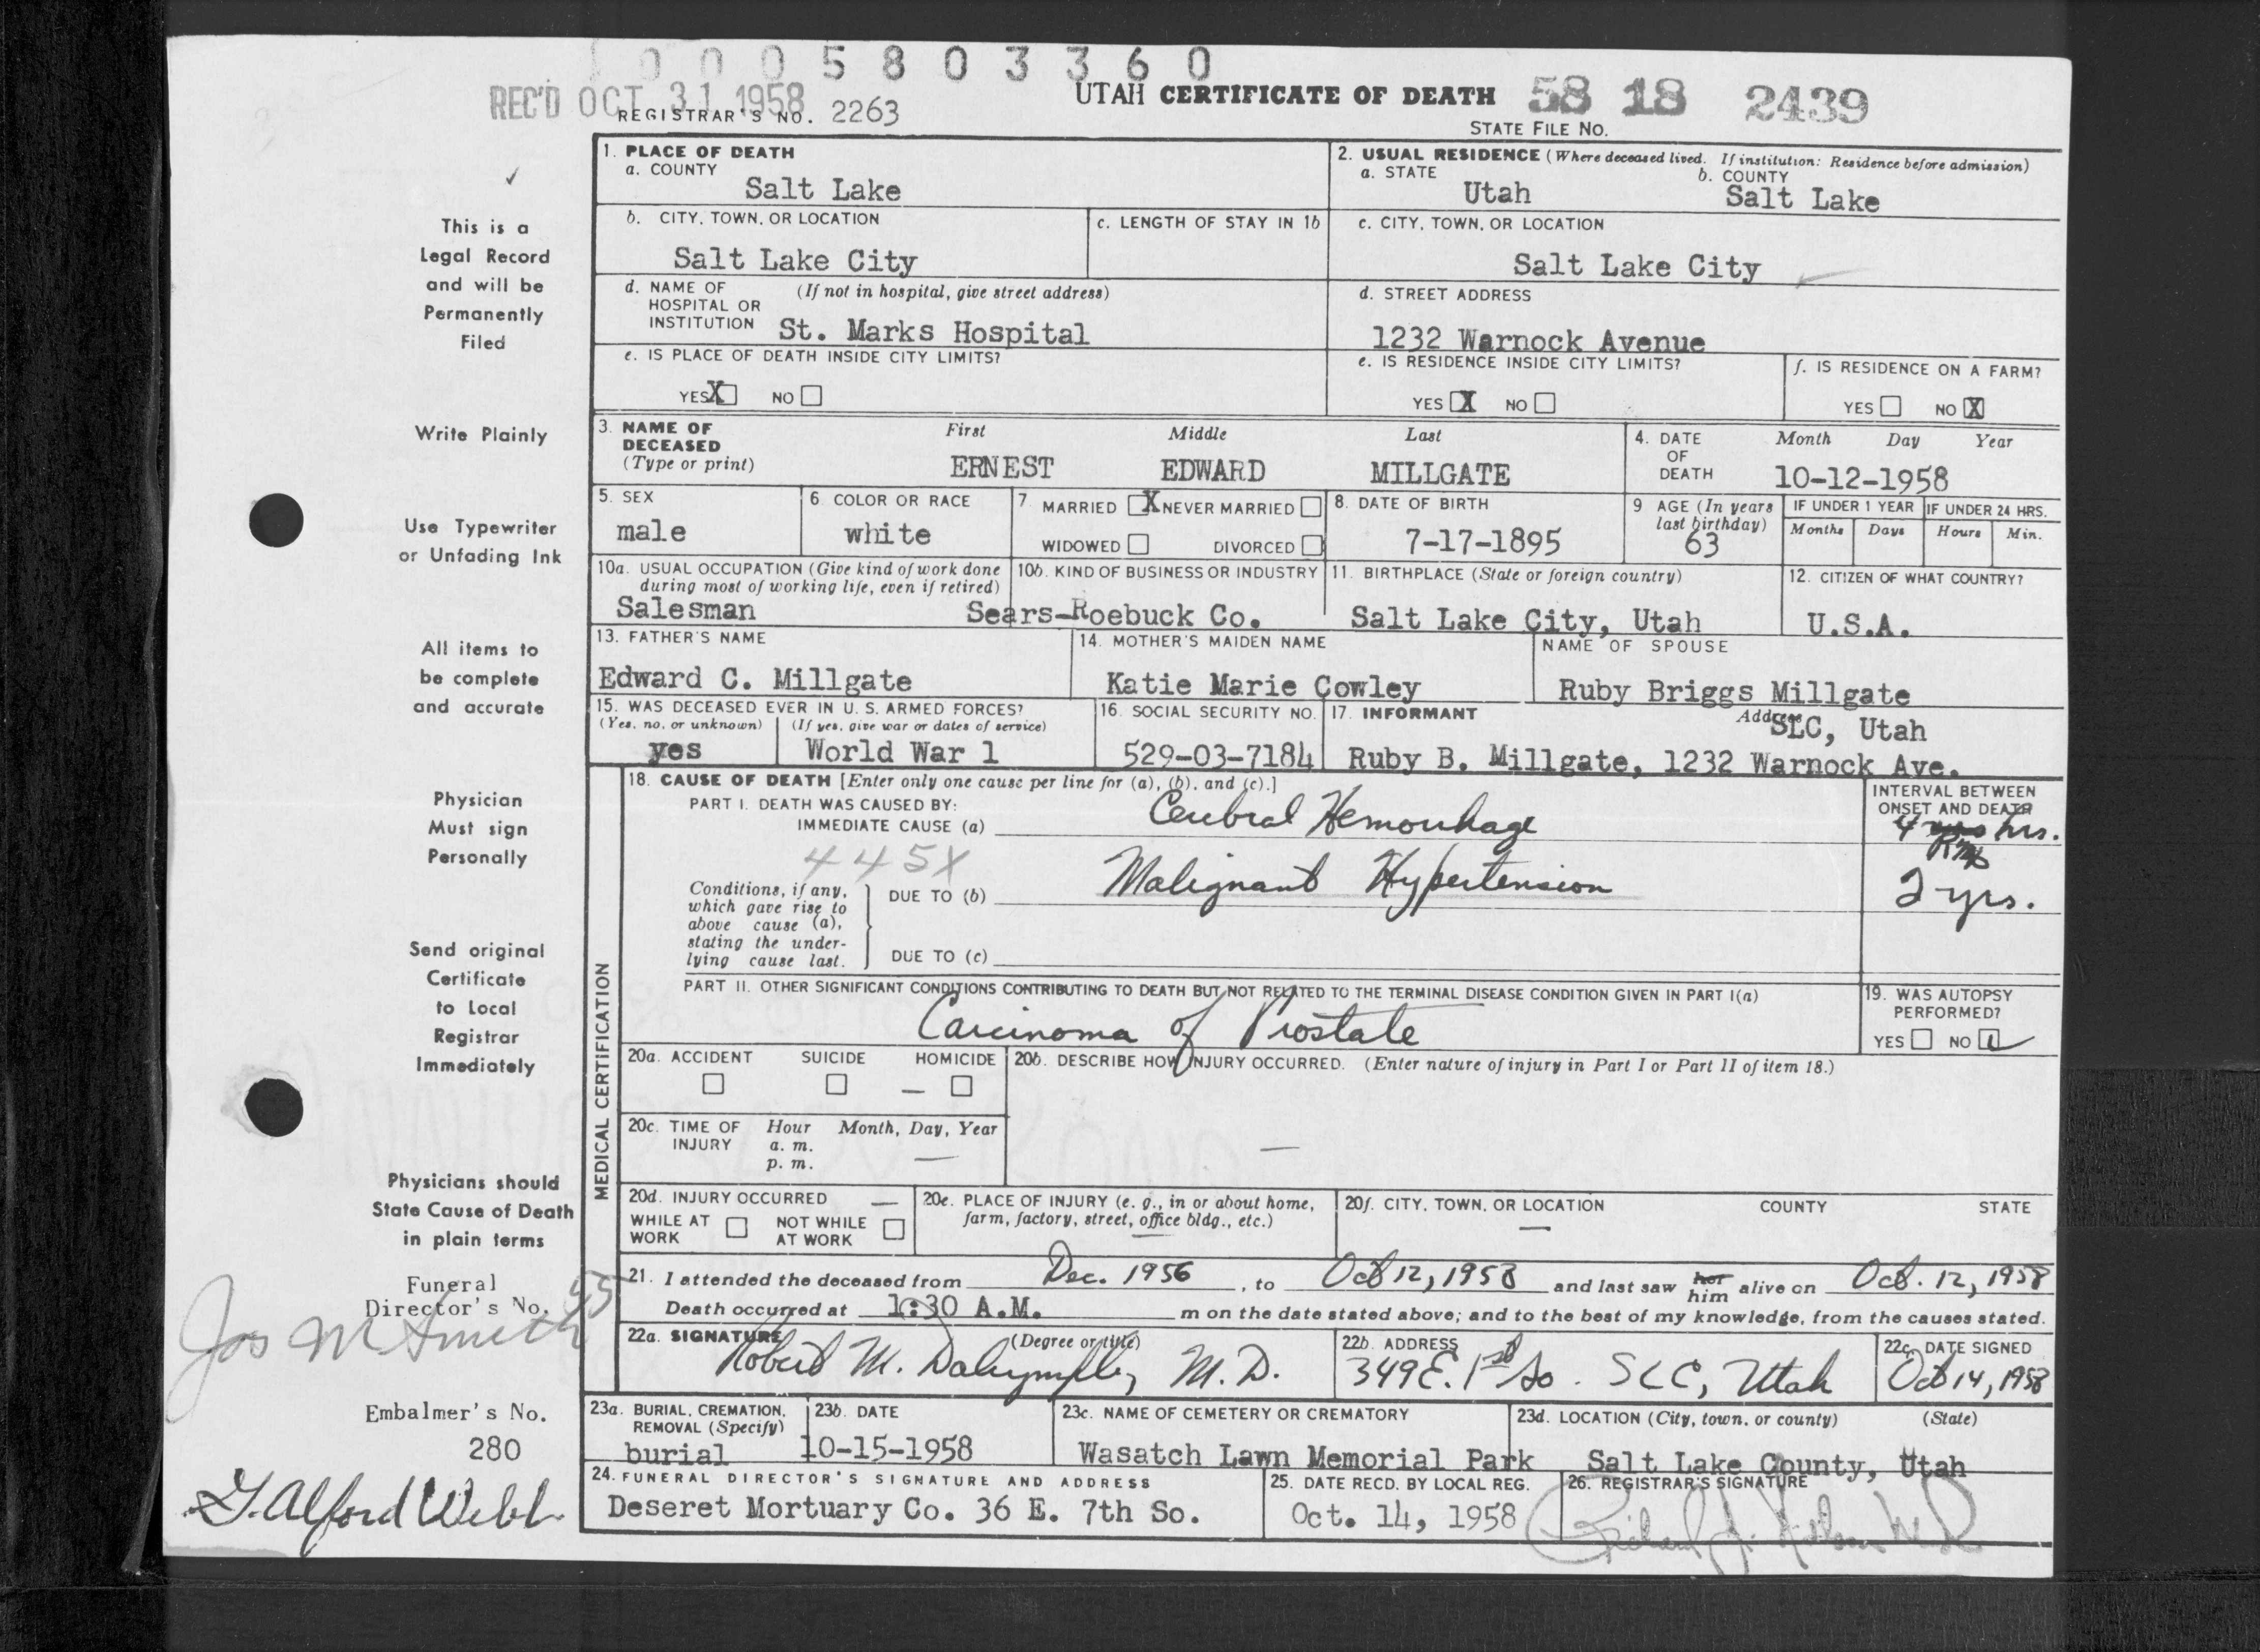 0 0 0 5 8 0 3 3 6 0
REC'D OCT 31 1958
REGISTRAR'S NO. 2263
UTAH CERTIFICATE OF DEATH 58 18 2439
STATE FILE No.
This is a
Legal Record
and will be
Permanently
Filed
Write Plainly
Use Typewriter
or Unfading Ink
All items to
be complete
and accurate
Physician
Must sign
Personally
Send original
Certificate
to Local
Registrar
Immediately
Physicians should
State Cause of Death
in plain terms
Funeral
Director's No. 55
Jos M Smith
Embalmer's No.
280
G. Alford Webb
1. PLACE OF DEATH
a. COUNTY
Salt Lake
2. USUAL RESIDENCE (Where deceased lived. If institution: Residence before admission)
a. STATE b. COUNTY
Utah Salt Lake
b. CITY, TOWN, OR LOCATION
Salt Lake City
c. LENGTH OF STAY IN 1b
c. CITY, TOWN, OR LOCATION
Salt Lake City
d. NAME OF (If not in hospital, give street address)
HOSPITAL OR
INSTITUTION St. Marks Hospital
d. STREET ADDRESS
1232 Warnock Avenue
e. IS PLACE OF DEATH INSIDE CITY LIMITS?
YES X NO
e. IS RESIDENCE INSIDE CITY LIMITS?
YES X NO
f. IS RESIDENCE ON A FARM?
YES NO X
3. NAME OF First Middle Last
DECEASED
(Type or print) ERNEST EDWARD MILLGATE
4. DATE Month Day Year
OF
DEATH 10-12-1958
5. SEX
male
6. COLOR OR RACE
white
7. MARRIED X NEVER MARRIED
WIDOWED DIVORCED
8. DATE OF BIRTH
7-17-1895
9 AGE (In years
last birthday)
63
IF UNDER 1 YEAR IF UNDER 24 HRS.
Months Days Hours Min.
10a. USUAL OCCUPATION (Give kind of work done
during most of working life, even if retired)
Salesman
10b. KIND OF BUSINESS OR INDUSTRY
Sears-Roebuck Co.
11. BIRTHPLACE (State or foreign country)
Salt Lake City, Utah
12. CITIZEN OF WHAT COUNTRY?
U.S.A.
13. FATHER'S NAME
Edward C. Millgate
14. MOTHER'S MAIDEN NAME
Katie Marie Cowley
NAME OF SPOUSE
Ruby Briggs Millgate
15. WAS DECEASED EVER IN U. S. ARMED FORCES?
(Yes, no, or unknown) (If yes, give war or dates of service)
yes World War 1
16. SOCIAL SECURITY NO.
529-03-7184
17. INFORMANT Address
SLC, Utah
Ruby B. Millgate, 1232 Warnock Ave.
MEDICAL CERTIFICATION
18. CAUSE OF DEATH [Enter only one cause per line for (a), (b), and (c).]
PART I. DEATH WAS CAUSED BY:
IMMEDIATE CAUSE (a) Cerebral Hemorrhage
INTERVAL BETWEEN
ONSET AND DEATH
4 yrs hrs.
RMD
445X
Conditions, if any,
which gave rise to
above cause (a),
stating the under-
lying cause last.
DUE TO (b) Malignant Hypertension
2 yrs.
DUE TO (c)
PART II. OTHER SIGNIFICANT CONDITIONS CONTRIBUTING TO DEATH BUT NOT RELATED TO THE TERMINAL DISEASE CONDITION GIVEN IN PART I(a)
Carcinoma of Prostate
19. WAS AUTOPSY
PERFORMED?
YES NO
20a. ACCIDENT SUICIDE HOMICIDE
—
20b. DESCRIBE HOW INJURY OCCURRED. (Enter nature of injury in Part I or Part II of item 18.)
20c. TIME OF Hour Month, Day, Year
INJURY a. m.
p. m. —
—
20d. INJURY OCCURRED —
WHILE AT NOT WHILE
WORK AT WORK
20e. PLACE OF INJURY (e. g., in or about home,
farm, factory, street, office bldg., etc.)
—
20f. CITY, TOWN, OR LOCATION COUNTY STATE
—
21. I attended the deceased from Dec. 1956, to Oct 12, 1958 and last saw her him alive on Oct. 12, 1958
Death occurred at 1:30 A.M. m on the date stated above; and to the best of my knowledge, from the causes stated.
22a. SIGNATURE (Degree or title)
Robert M. Dalrymple, M.D.
22b. ADDRESS
349 E. 1st So. SLC, Utah
22c. DATE SIGNED
Oct 14, 1958
23a. BURIAL, CREMATION,
REMOVAL (Specify)
burial
23b. DATE
10-15-1958
23c. NAME OF CEMETERY OR CREMATORY
Wasatch Lawn Memorial Park
23d. LOCATION (City, town, or county) (State)
Salt Lake County, Utah
24. FUNERAL DIRECTOR'S SIGNATURE AND ADDRESS
Deseret Mortuary Co. 36 E. 7th So.
25. DATE RECD. BY LOCAL REG.
Oct. 14, 1958
26. REGISTRAR'S SIGNATURE